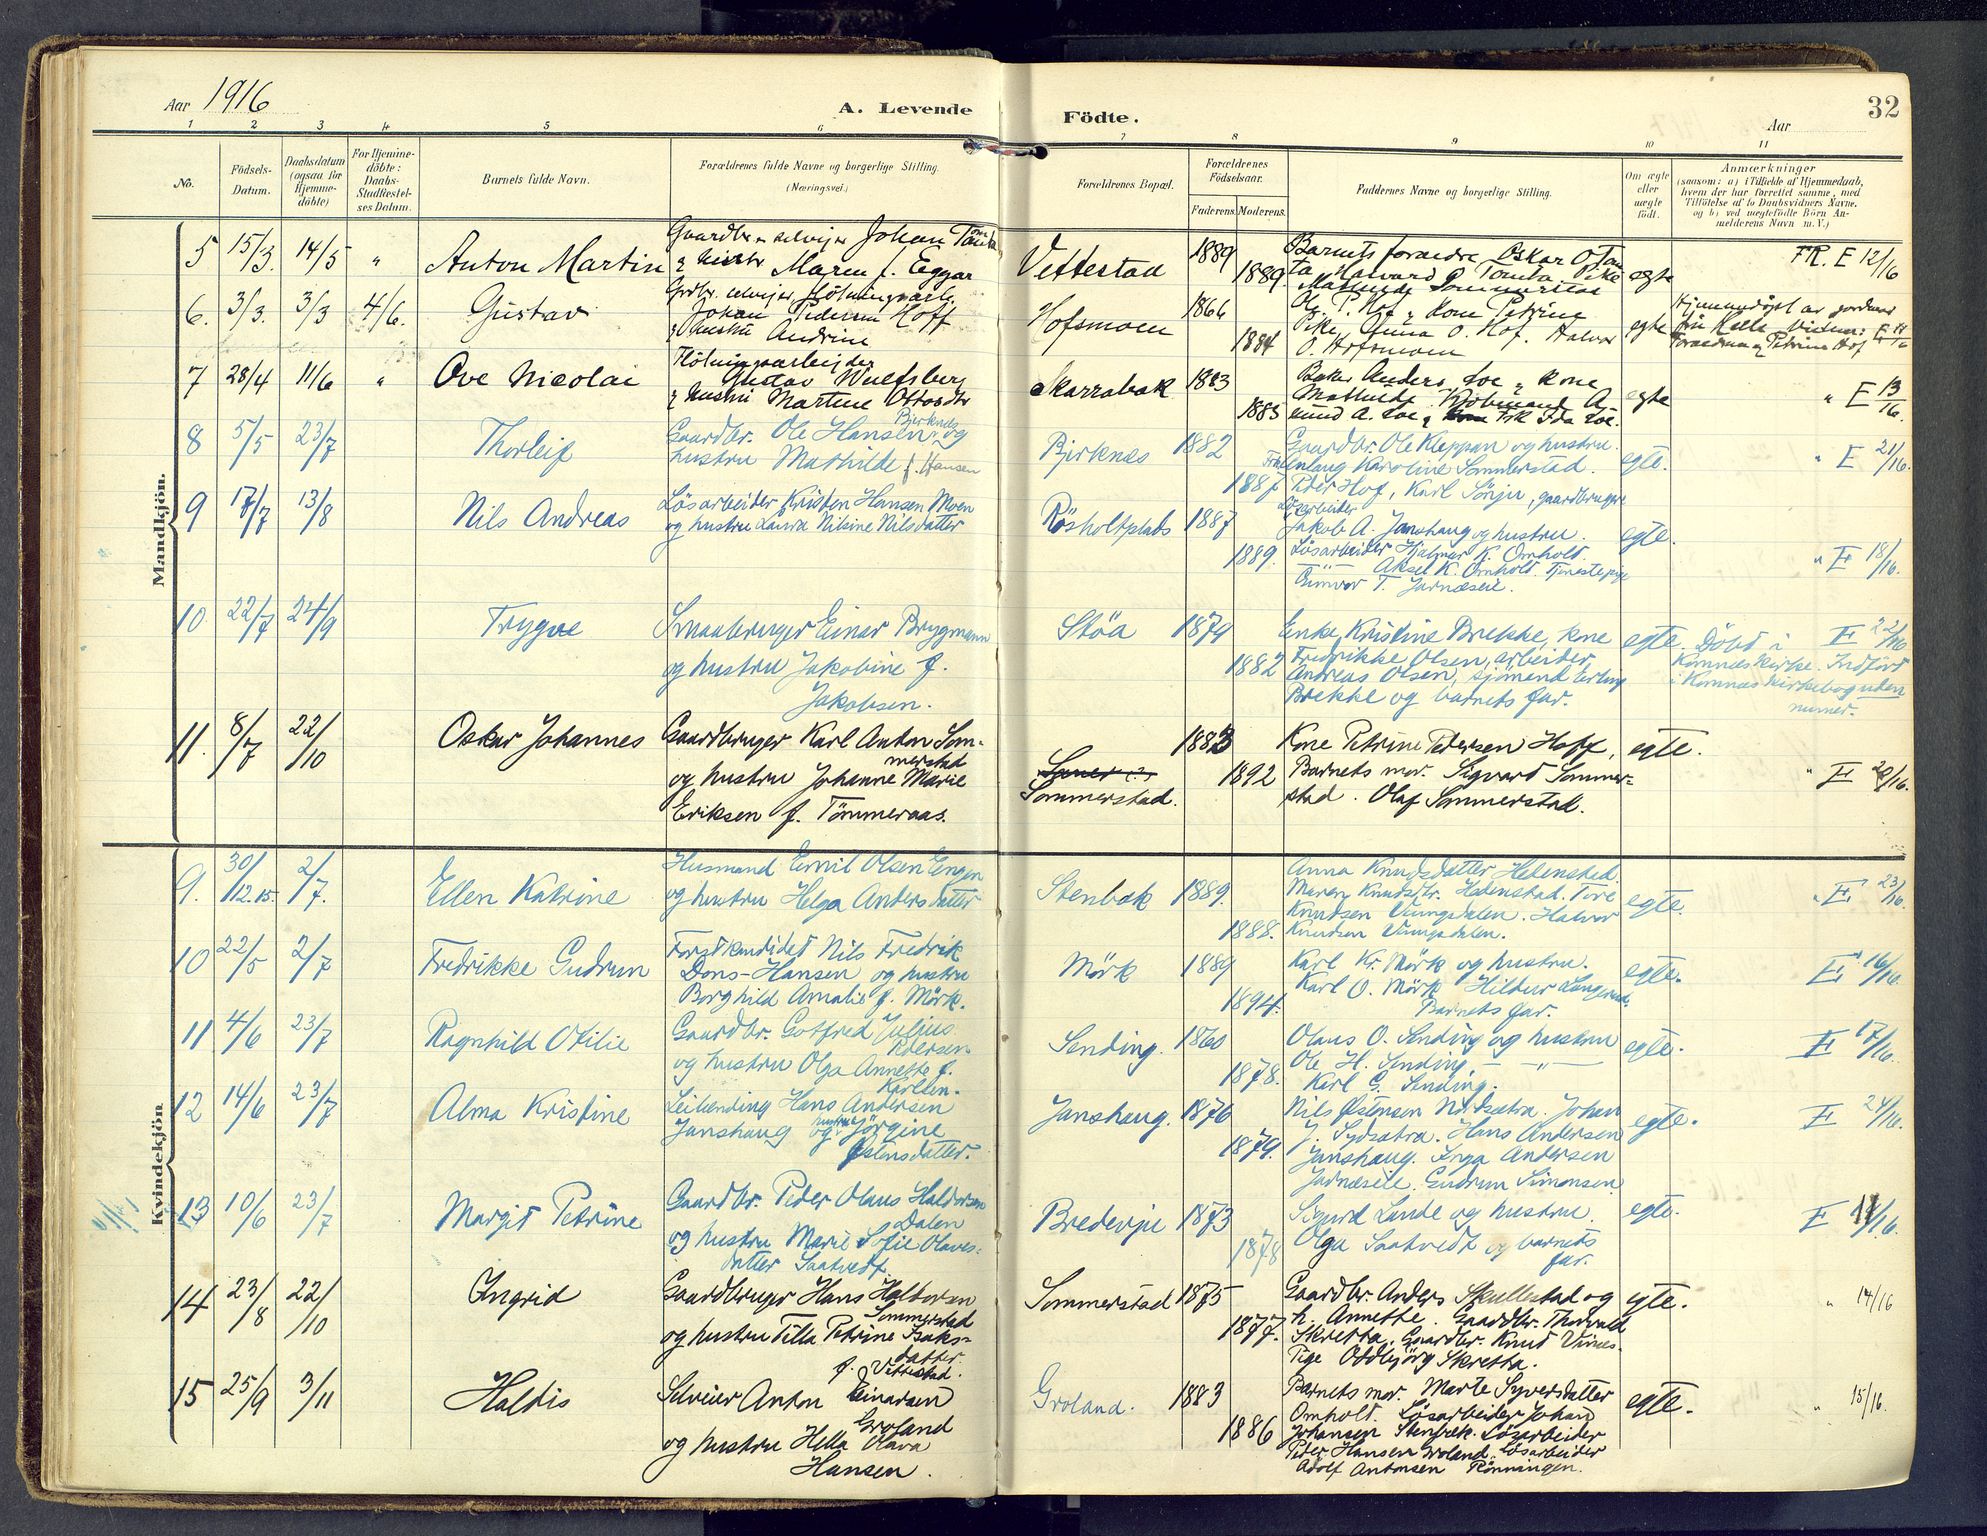 Aar 1916
A. Levende
Födte.
Aar
32
1 2 3 4 5 6 7 8 9 10 11
No.
Födsels-
Datum.
Daabsdatum
(ogsaa for
Hjemme-
döbte)
For Hjemme-
döbte:
Daabs-
Stadfestel-
ses Datum.
Barnets fulde Navn.
Forældrenes fulde Navne og borgerlige Stilling.
(Næringsvei.)
Forældrenes Bopæl.
Forældrenes
Födselsaar.
Faderens. Moderens.
Faddernes Navne og borgerlige Stilling.
Om ægte
eller
uægte
födt.
Anmærkninger
(saasom: a) i Tilfælde af Hjemmedaab,
hvem der har forrettet samme, med
Tilföielse af to Daabsvidners Navne.
og b) ved uægtefödte Börn An-
melderens Navn m. V.)
Mandkjön.
5 15/3. 14/5 " Anton Martin
Johan Tomta
Maren f. Eggar
Vettestad
1889
1889.
Barnets foraedre Oskar O Tom
ta Halvard O Tomta Pike
egte
FR. E 12/16
6. 3/3. 3/3 4/6. Gustav
Johan Pedersen Hoff
hustru Andrine
Hofsmoen
1866
1884
Ole P. Hof, kone Petrine
Pike Anna O. Hof. Halvor
O. Hofsmoen
egte
Petrine Hof
7 28/4 11/6 " Ove Nicolai
Flötningsarbeider
Gustav Wulfsberg
hustru Martine Ottosdtr
Skarrabak
1883
1885
Baker Anders Loe, kone
Mathilde
A. Loe, Ida Loe.
egte
" E 13/16.
8 5/5 23/7 Thorleif
Bjerknes
Gaardbr. Ole Hansen og
hustru Mathilde f. Hansen
Bjerknes
1882
1887
Gaardbr. Ole Kleppan og hustru.
Karoline Sommerstad.
Peder Hof, Karl Sönju, gaardbrugere
egte.
" E 21/16.
9 17/7 13/8 Nils Andreas
Lösarbeider Kristen Hansen Moen
og hustru Laura Nilsine Nilsdatter
Rösholtplads
1887
1889.
Lösarbeider
Jakob A. Janshaug og hustru.
Lösarbeider Hjalmar K. Omholt.
Aksel K. Omholt. Tjenestepige
Gunvor T. Jarnæseie.
egte.
" E 18/16.
10 22/7 24/9 Trygve
Smaabruger Einar Brygmann
og hustru Jakobine f.
Jakobsen.
Stöa
1879
1882
Enke Kristine Brekke, kone
Fredrikke Olsen, arbeider
Andreas Olsen, sjömand Erling
Brekke og barnets far.
egte.
Döbt i E 22/16
Komnæs kirke. Indfört
i Komnæs kirkebog uden
numer.
11. 8/7 22/10 Oskar Johannes
Gaardbruger Karl Anton Som-
merstad
og hustru Johanne Marie
Eriksen f. Tömmeraas.
Sommerstad.
1883
1892
Kone Petrine Pedersen Hoff,
Barnets mor. Sigvard Sommer-
stad. Olaf Sommerstad.
egte.
" E 20/16.
Kvindekjön
9. 30/12.15. 2/7. Ellen Katrine
Husmand Emil Olsen Engen
og hustru Helga Andersdatter
Stenbæk
1889.
1888.
Anna Knudsdatter Helenstad.
Maren Knudsdtr. Helenstad. Tore
Knudsen Vungsdalen. Halvor
Knudsen Vungsdalen.
egte.
" E 23/16.
10 22/5 2/7 Fredrikke Gudrun
Forstkandidat Nils Fredrik
Dons-Hansen og hustru
Borghild Amalie f. Mörk.
Mörk
1889
1894.
Karl Kr. Mörk og hustru.
Karl O. Mörk Hildur Langerud.
Barnets far.
egte.
E 16/16.
11 4/6 23/7 Ragnhild Otilie
Gaardbr. Gotfred Julius
Pedersen
og hustru Olga Annette f.
Karlsen.
Sending.
1860
1878.
Olaus O. Sending og hustru
Ole H. Sending, — " —
Karl G. Sending.
egte.
E 17/16.
12 14/6 23/7 Alma Kristine
Leilænding Hans Andersen
Janshaug og hustru Jörgine
Østensdatter.
Janshaug.
1876
1879.
Nils Østensen Nordsætra. Johan
J. Sydsætra. Hans Andersen
Janshaug. Inga Andersen
Jarnæseie. Gudrun Simonsen
egte.
E 24/16.
13 10/6 23/7 Margit Petrine
Gaardbr. Peder Olaus Haldorsen
Dalen
og hustru Marie Sofie Olaves-
datter Saatvedt.
Bredevju
1873
1878
Sigurd Lunde og hustru.
Olga Saatvedt og barnets
far.
egte.
E 11/16.
14 23/8 22/10 Ingrid
Gaardbruger Hans Haldorsen
Sommerstad
og hustru Tilla Petrine Isaks-
datter
f. Vettestad.
Sommerstad
1875
1877.
Gaardbr. Anders Skullestad og
h. Annette. Gaardbr. Thorvald
Skretta. Gaardbr. Knud Vinnes.
Pige Oddbjörg Skretta.
egte.
" 14/16
15 25/9 3/11 Haldis
Selveier Anton Einarsen
Groland
og hustru Hella Olava
Hansen.
Groland.
1883
1886
Barnets mor. Marte Syversdatter
Omholt. Lösarbeider Johan
Johansen Stenbæk. Lösarbeider
Peder Hansen Groland. Lösarbeider
Adolf Antonsen Rönningen.
egte.
" 15/16.